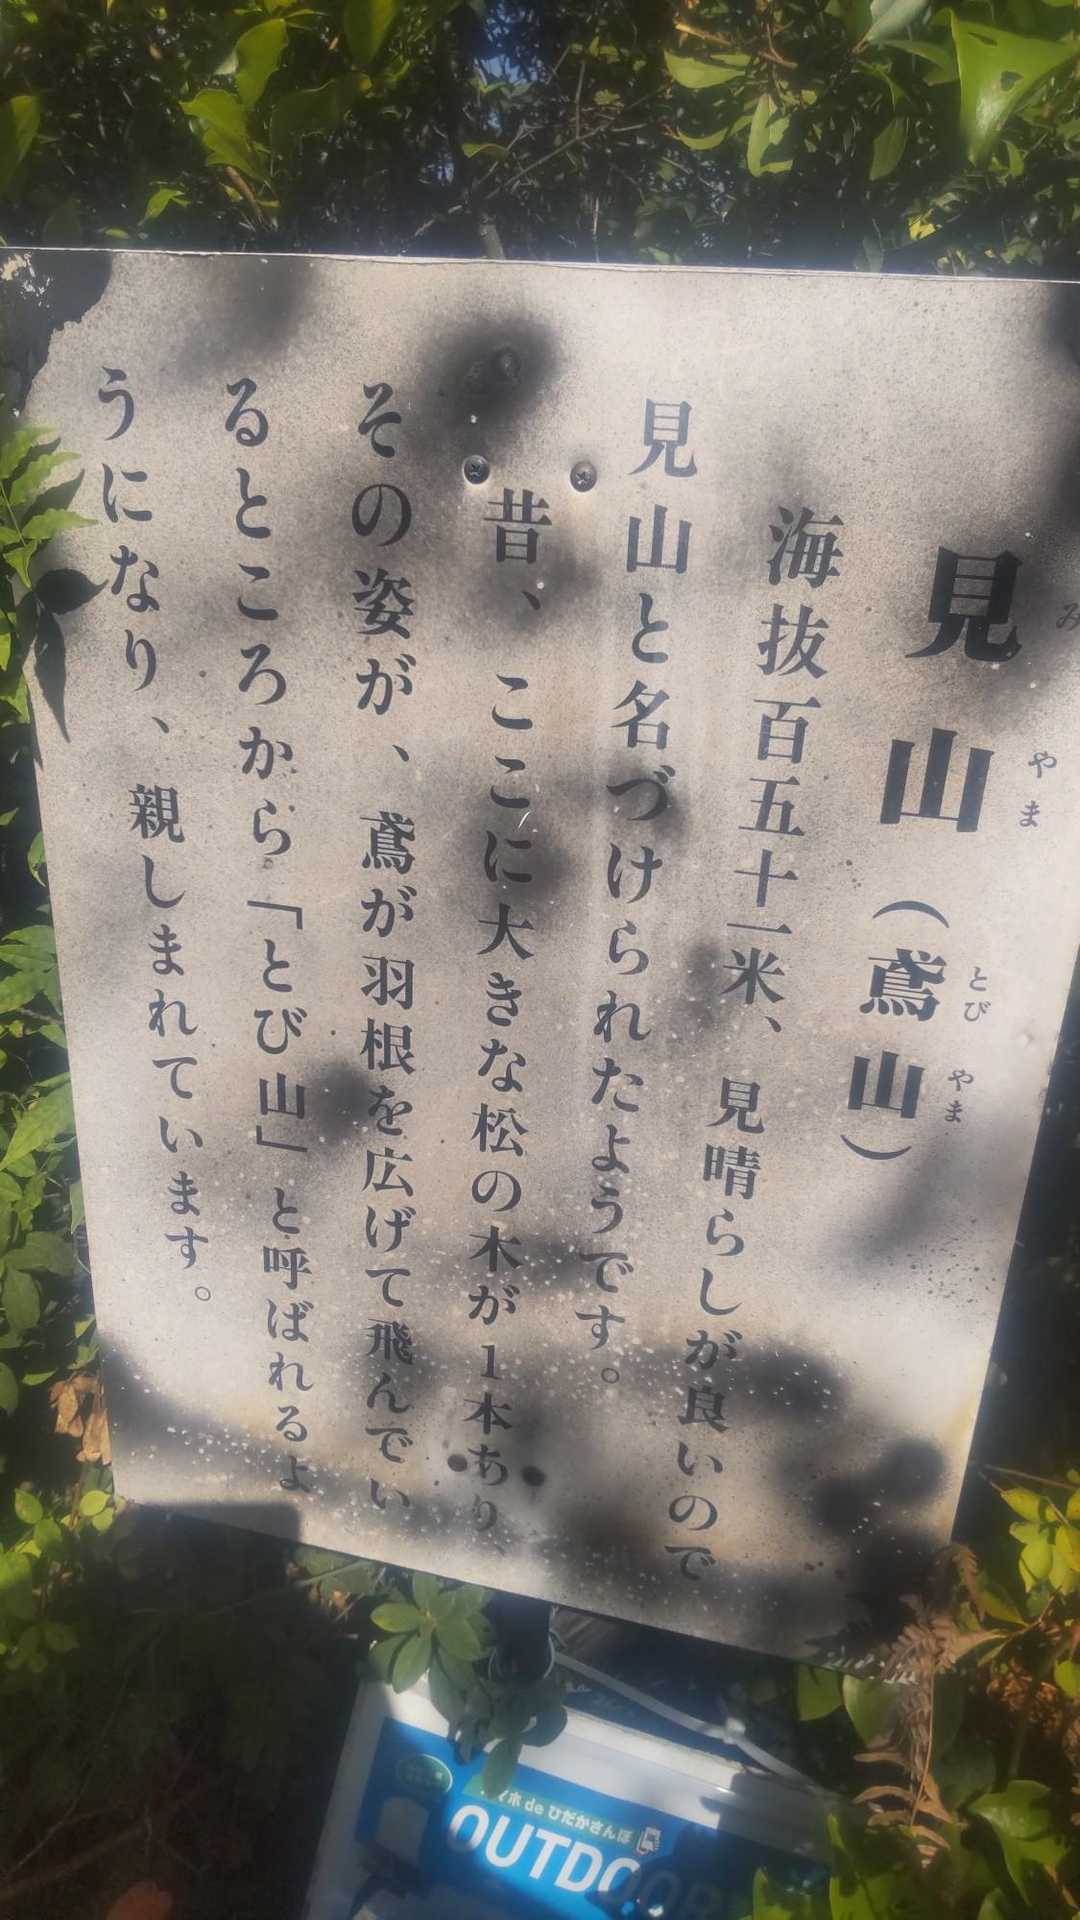 見山（鳶山）
みやま とびやま
海抜百五十一米、見晴らしが良いので
見山と名づけられたようです。
昔、ここに大きな松の木が1本あり、
その姿が、鳶が羽根を広げて飛んでい
るところから「とび山」と呼ばれるよ
うになり、親しまれています。
マホ de ひだかさんぽ
OUTDOOR